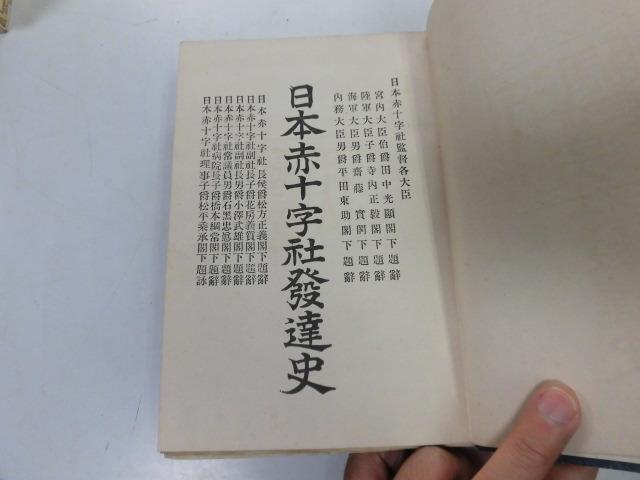 日本赤十字社監督各大臣
宮内大臣伯爵田中光顯閣下題辭
陸軍大臣子爵寺内正毅閣下題辭
海軍大臣男爵齋藤實閣下題辭
内務大臣男爵平田東助閣下題辭
日本赤十字社發達史
日本赤十字社長侯爵松方正義閣下題辭
日本赤十字社副社長子爵花房義質閣下題辭
日本赤十字社副社長男爵小澤武雄閣下題辭
日本赤十字社常議員男爵石黑忠悳閣下題辭
日本赤十字社病院長子爵橋本綱常閣下題辭
日本赤十字社理事子爵松平乘承閣下題詠